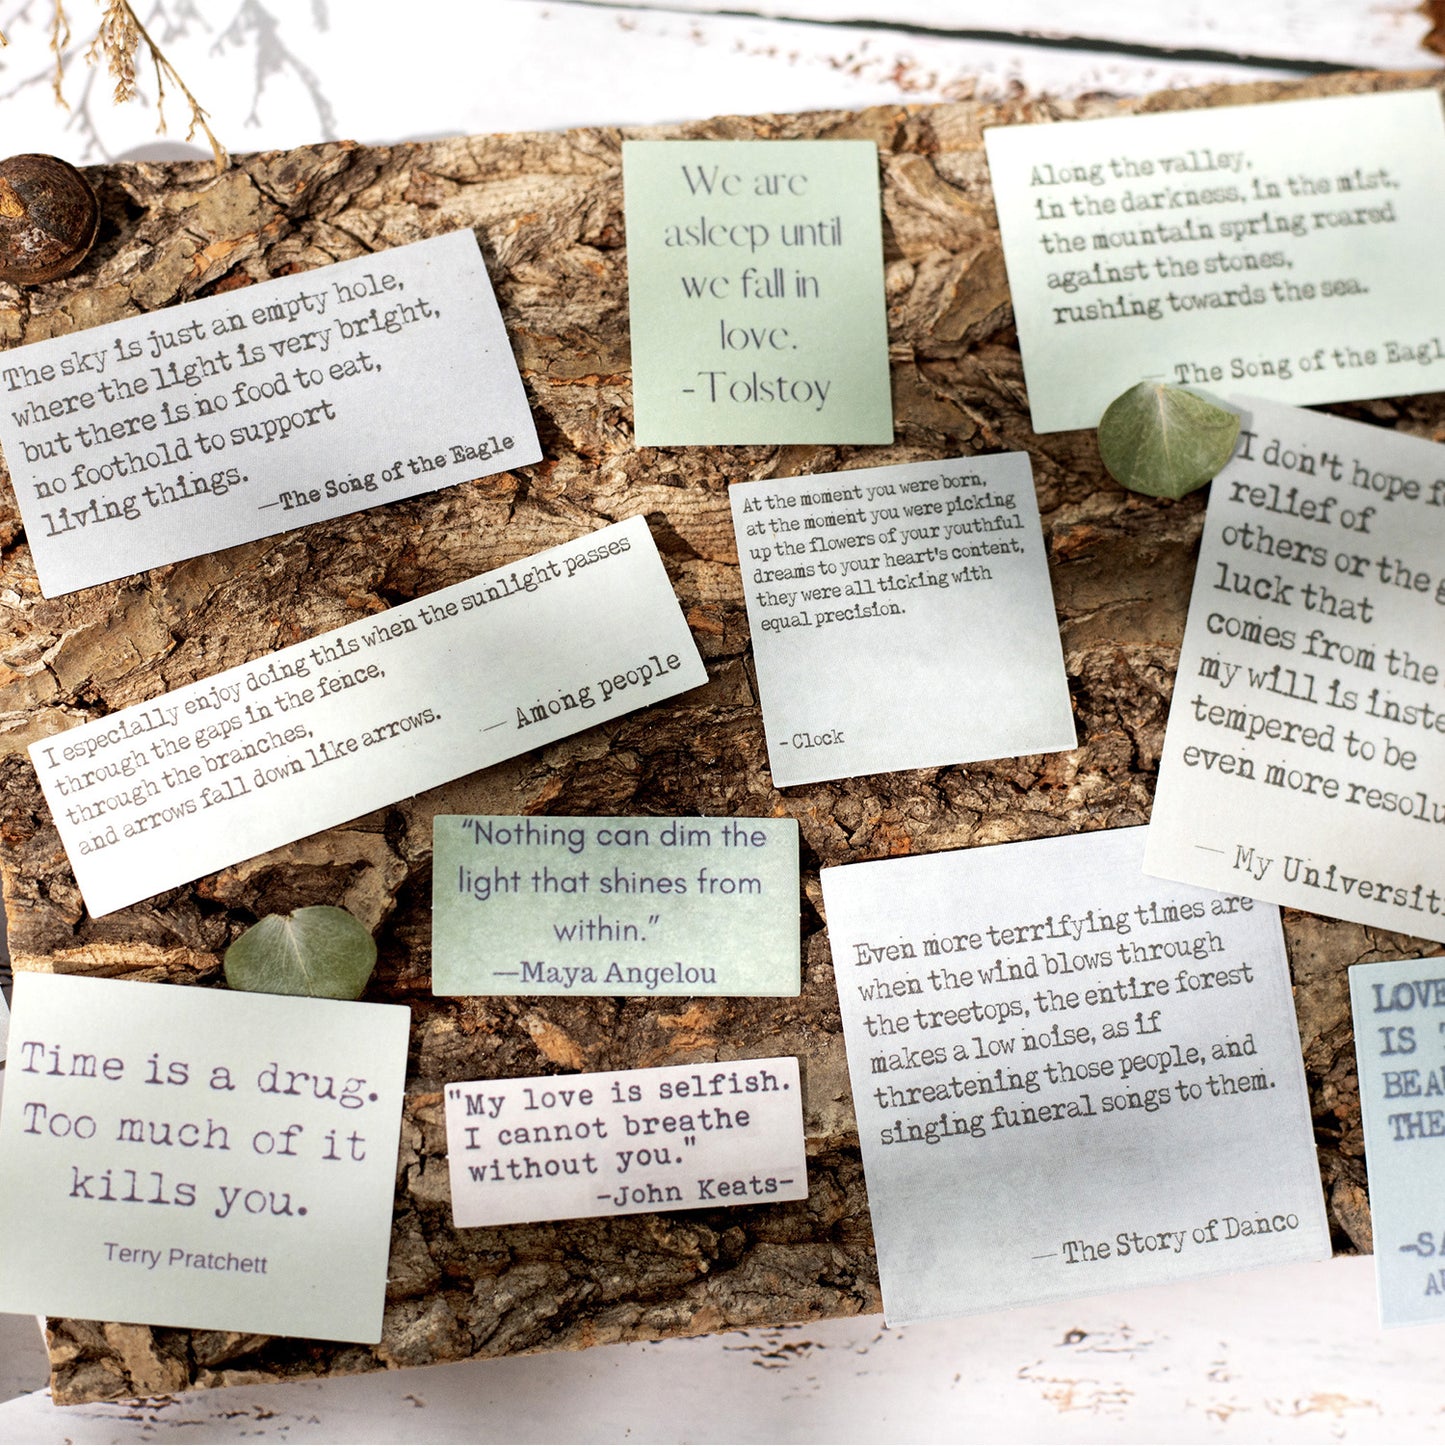 The sky is just an empty hole,
where the light is very bright,
but there is no food to eat,
no foothold to support
living things.
—The Song of the Eagle
We are
asleep until
we fall in
love.
-Tolstoy
Along the valley,
in the darkness, in the mist,
the mountain spring roared
against the stones,
rushing towards the sea.
— The Song of the Eagl
I especially enjoy doing this when the sunlight passes
through the gaps in the fence,
through the branches,
and arrows fall down like arrows.
— Among people
At the moment you were born,
at the moment you were picking
up the flowers of your youthful
dreams to your heart's content,
they were all ticking with
equal precision.
- Clock
I don't hope
relief of
others or the
luck that
comes from the
my will is
tempered to be
even more
— My
"Nothing can dim the
light that shines from
within."
—Maya Angelou
Even more terrifying times are
when the wind blows through
the treetops, the entire forest
makes a low noise, as if
threatening those people, and
singing funeral songs to them.
— The Story of Danco
Time is a drug.
Too much of it
kills you.
Terry Pratchett
"My love is selfish.
I cannot breathe
without you."
-John Keats-
LOVE
IS
THE